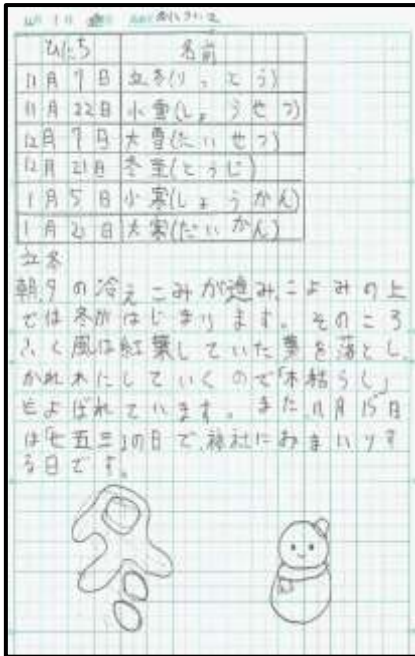 ひにち 名前
11月7日 立冬(りっとう)
11月22日 小雪(しょうせつ)
12月7日 大雪(たいせつ)
12月21日 冬至(とうじ)
1月5日 小寒(しょうかん)
1月2日 大寒(だいかん)
立冬
朝夕の冷えこみが進み、こよみの上
では冬がはじまります。そのころ
ふく風は紅葉していた葉を落とし、
かれ木にしていくので「木枯らし」
とよばれています。また、11月15日
は「七五三」の日で、神社におまいりす
る日です。
冬